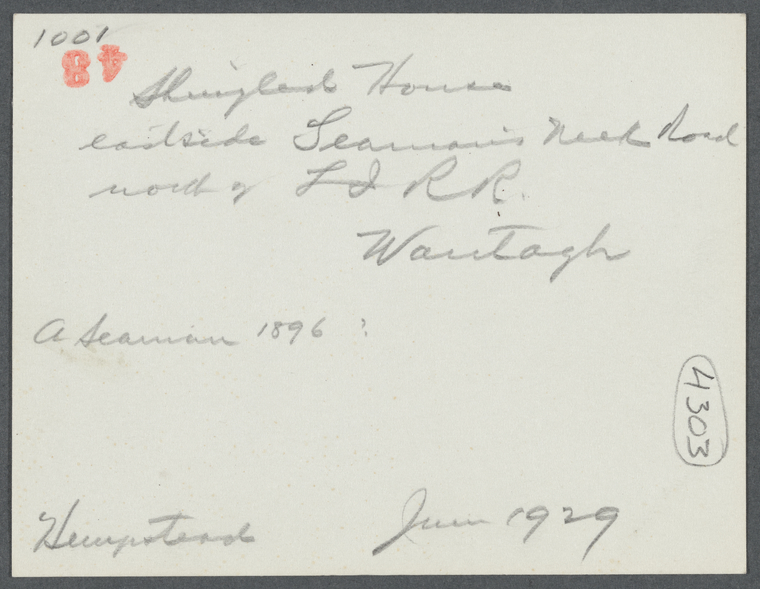 1001
48
Shingled House
east side Seaman's Neck Road
north of L I R R.
Wantagh
A Seaman 1896 ?
4303
Hempstead June 1929